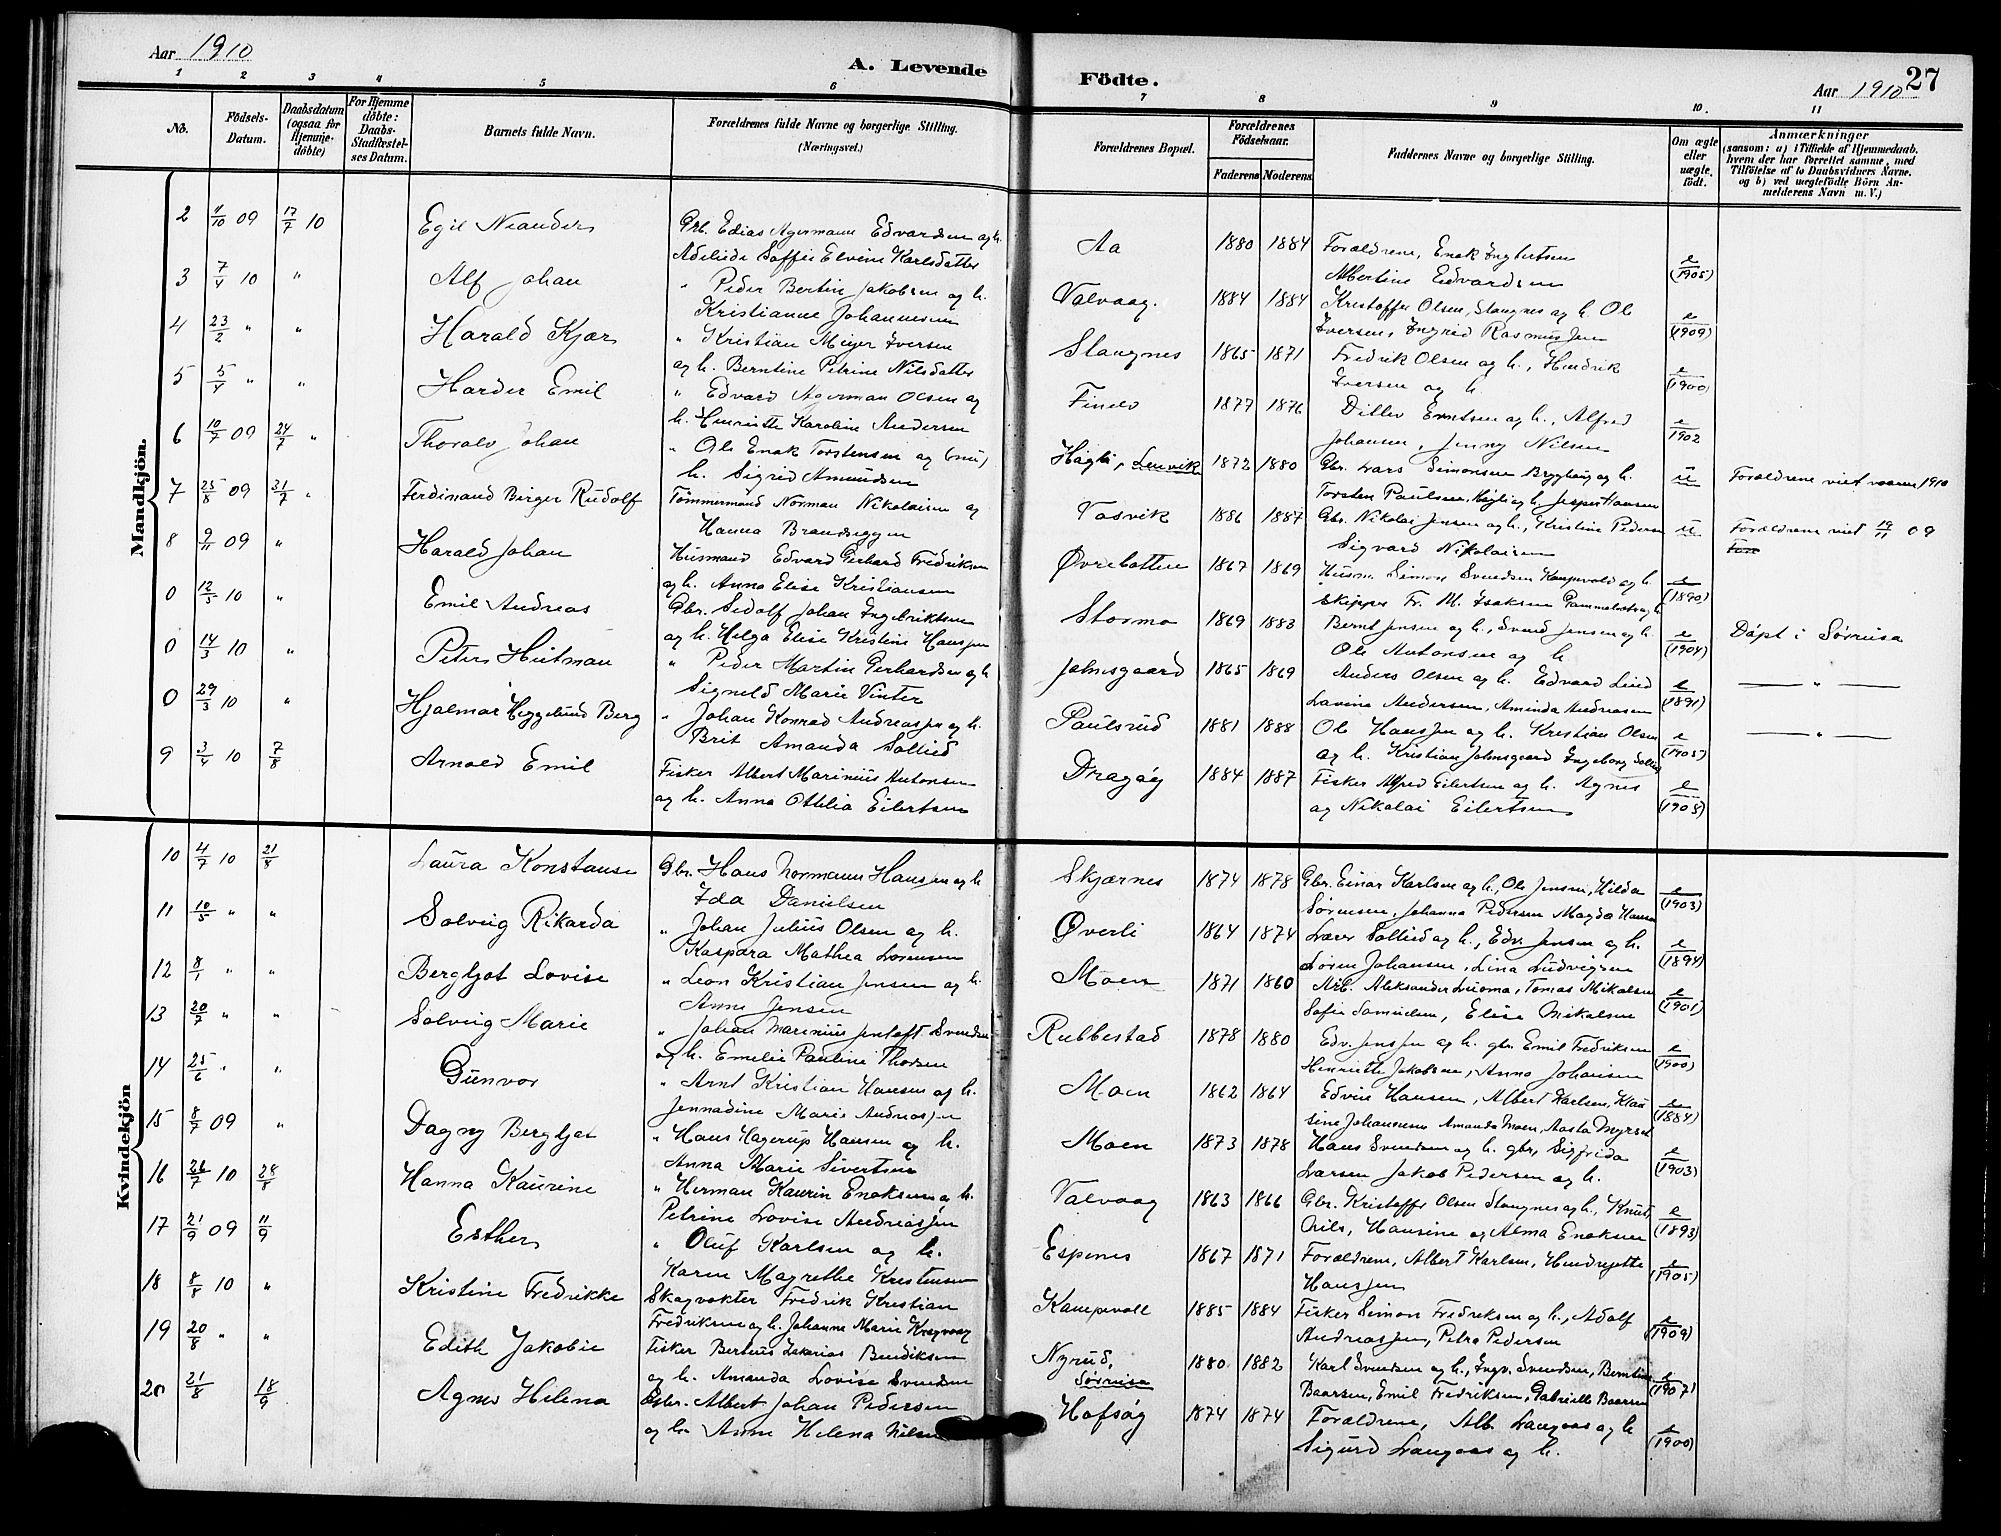 Aar 1910
A. Levende Födte.
Aar 1910
27
1 2 3 4 5 6 7 8 9 10. 11
No.
Födsels-Datum.
Daabsdatum (ogsaa for Hjemmedöbte)
For Hjemmedöbte: Daabs-Stadfæstelses Datum.
Barnets fulde Navn.
Forældrenes fulde Navne og borgerlige Stilling.
(Næringsvei.)
Forældrenes Bopæl.
Forældrenes Födselsaar.
Faderens Moderens
Faddernes Navne og borgerlige Stilling.
Om ægte eller uægte født.
Anmærkninger
(saasom: a) i Tilfælde af Hjemmedaab, hvem der har forrettet samme, med Tilföielse af to Daabsvidners Navne, og b) ved uægtefödte Börn Anmelderens Navn m. V.)
Mandkjön.
2 11/10 09 17/7 10 Egil Neander Gbr. Edias Agermann Edvardsen og h. Aa 1880 1884 Forældrene, Enok Ingbertsen e (1905)
Adelide Soffie Elvine Karlsdatter Albertine Edvardsen
3 7/4 10 " Alf Johan " Peder Bertin Jakobsen og h. Valvaag. 1884 1884 Kristoffer Olsen, Stangnes og h. Ol e (1909)
Kristianne Johannesen Iversen, Ingrid Rasmussen
4 23/2 " " Harald Kjær " Kristian Meyer Iversen Stangnes 1865 1871 Fredrik Olsen og h., Hendrik e (1900)
og h. Berntine Petrine Nilsdatter Iversen og h.
5 5/4 " " Harder Emil " Edvard Agerman Olsen og Finlv 1877 1876 Ditlev Erntsen og h., Alfred e 1902
h. Henriette Karoline Andersen Johansen, Jenny Nilsen
6 10/7 09 24/7 " Thoralv Johan " Ole Enok Torstensen og (nu) Høgli, Lenvik 1872 1880 Gbr. Lars Simonsen Brygghaug og h. u Forældrene viet vaaren 1910
h. Sigrid Amundsen Torsten Paulsen, Høgli og h. Jesper Hansen
7 25/8 09 31/7 " Ferdinand Birger Rudolf Tømmermand Norman Nikolaisen og Vasvik 1886 1887 Gbr. Nikolai Jensen og h., Kristine Pedersen u Forældrene viet 19/11 09
Hanna Brandseggen Sigvard Nikolaisen
8 9/11 09 " Harald Johan Husmand Edvard Gerhard Fredriksen Øvrebotten 1867 1869 Husm. Simon Svendsen Kampevold og h. e (1890)
og h. Anna Elise Kristiansen Skipper Fr. M. Isaksen
0 12/5 10 " Emil Andreas Gbr. Sedolf Johan Ingebriktsen Stormo 1869 1883 Bernt Jensen og h., Svend Jensen og h. e (1904) Døpt i Sørreisa
og h. Helga Elise Kristine Hanssen Ole Antonsen og h
0 14/3 10 " Peter Hutman " Peder Martin Gerhardsen og h Johnsgaard 1865 1869 Anders Olsen og h. Edvard Lind e (1891) — " —
Signeld Marie Vinter Lavina Andersen, Aminda Andreasen
0 29/3 10 " Hjalmar Heggelund Berg " Johan Konrad Andreassen og h. Paulsrud 1881 1888 Ole Hanssen og h. Kristian Olsen e (1905) — " —
Brit Amanda Sollied og h. Kristian Johnsgaard Ingeborg Sollied
9 3/4 10 7/8 Arnold Emil Fisker Albert Marinius Antonsen Dragøy 1884 1887 Fisker Alfred Eilertsen og h. Agnes e (1908)
og h. Anna Othilia Eilertsen og Nikolai Eilertsen
Kvindekjön
10 4/7 10 21/8 Laura Konstanse Gbr. Hans Normann Hanssen og h Skjærnes 1874 1878 Gbr. Einar Karlsen og h., Ole Jensen, Hilda e (1903)
Ida Danielsen Sørensen, Johanna Pedersen Magda Hansen
11 10/5 " " Solveig Rikarda " Johan Julius Olsen og h. Øverli 1864 1874 Lærer Sollied og h., Edv. Jensen og h. e (1894)
Kaspara Mathea Lorensen Søren Johansen, Lina Ludvigsen
12 8/1 " " Bergljot Lovise " Leon Kristian Jensen og h. Moen 1871 1860 Arb. Aleksander Luoma, Tomas Mikalsen e (1901)
Anne Jensen Sofie Samuelsen, Elise Mikalsen
13 20/7 " " Solveig Marie " Johan Marinius Jentoft Svendsen Rubbestad 1878 1880 Edv. Jenssen og h. gbr. Emil Fredriksen e (1900)
og h. Emelie Pauline Thorsen Henriette Jakobsen, Anna Johansen
14 25/6 " " Gunvor " Arnt Kristian Hansen og h. Moen 1862 1864 Edvin Hansen, Albert Karlsen, Klau e (1884)
Jennadine Marie Andreassen sine Johansen Amanda Moen, Aasta Myrset
15 8/7 09 " Dagny Bergljot " Hans Hagerup Hansen og h. Moen 1873 1878 Hans Svendsen og h. gbr., Sigfrida e (1903)
Anna Marie Sivertsen Larsen Jakob Pedersen og h.
16 26/7 10 28/8 Hanna Kaurine " Herman Kaurin Enoksen og h. Valvaag 1863 1866 Gbr. Kristoffer Olsen Stangnes og h., Knut, e (1893)
Petrine Lovise Andreassen Nils, Hansine og Alma Enoksen
17 21/9 09 11/9 Esther " Oluf Karlsen og h. Espenes 1867 1871 Forældrene, Albert Karlsen, Hendrejette e (1905)
Karen Magrethe Kristensen Hanssen
18 8/8 10 " Kristine Fredrikke Skogvokter Fredrik Kristian Kampevoll 1885 1884 Fisker Simon Fredriksen og h., Adolf e (1909)
Fredriksen og h. Johanne Marie Kragvaag Andreassen, Petra Pedersen
19 20/8 " " Edith Jakobie Fisker Berteus Zakarias Bendiksen Nyrud, Sørreisa 1880 1882 Karl Svendsen og h., Ingv. Svendsen, Berntine e (1907)
og h. Amanda Lovise Svendsen Baarsen, Emil Fredriksen, Gabrielle Baarsen
20 21/8 18/9 Agnes Helena Gbr. Albert Johan Pedersen Hofsøy 1874 1874 Forældrene, Alb. Langaas og h e (1900)
og h. Anne Helena Nilsen Sigurd Langaas og h.